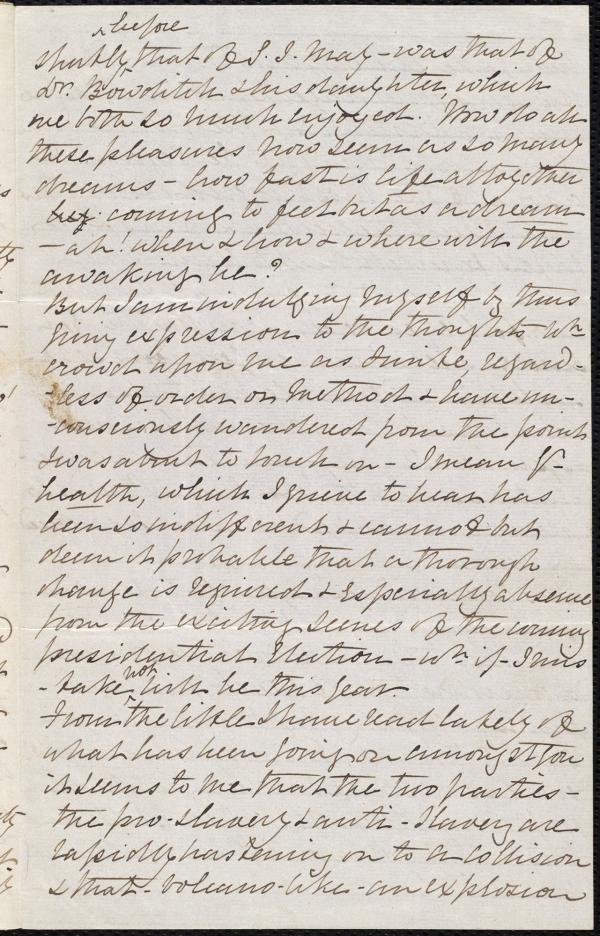 before
shortly that of S. J. May - was that of
Dr. Bowditch & his daughter, which
we both so much enjoyed. How do all
these pleasures now seem as so many
dreams - how fast is life altogether
coming to feel but as a dream
- ah! when & how & where will the
awaking be?
But I am indulging myself by thus
giving expression to the thoughts wh
crowd upon me as I write, regard-
-less of order or method & have un-
-consciously wandered from the point
I was about to touch on - I mean yr
health, which I grieve to hear has
been so indifferent & cannot but
deem it probable that a thorough
change is required & especially absence
from the exciting scenes of the coming
presidential Election - wh. if I mis
-take not will be this year.
From the little I have read lately of
what has been going on amongst you
it seems to me that the two parties -
the pro-slavery & anti-slavery are
rapidly hastening on to a collision
& that - volcano-like - an explosion